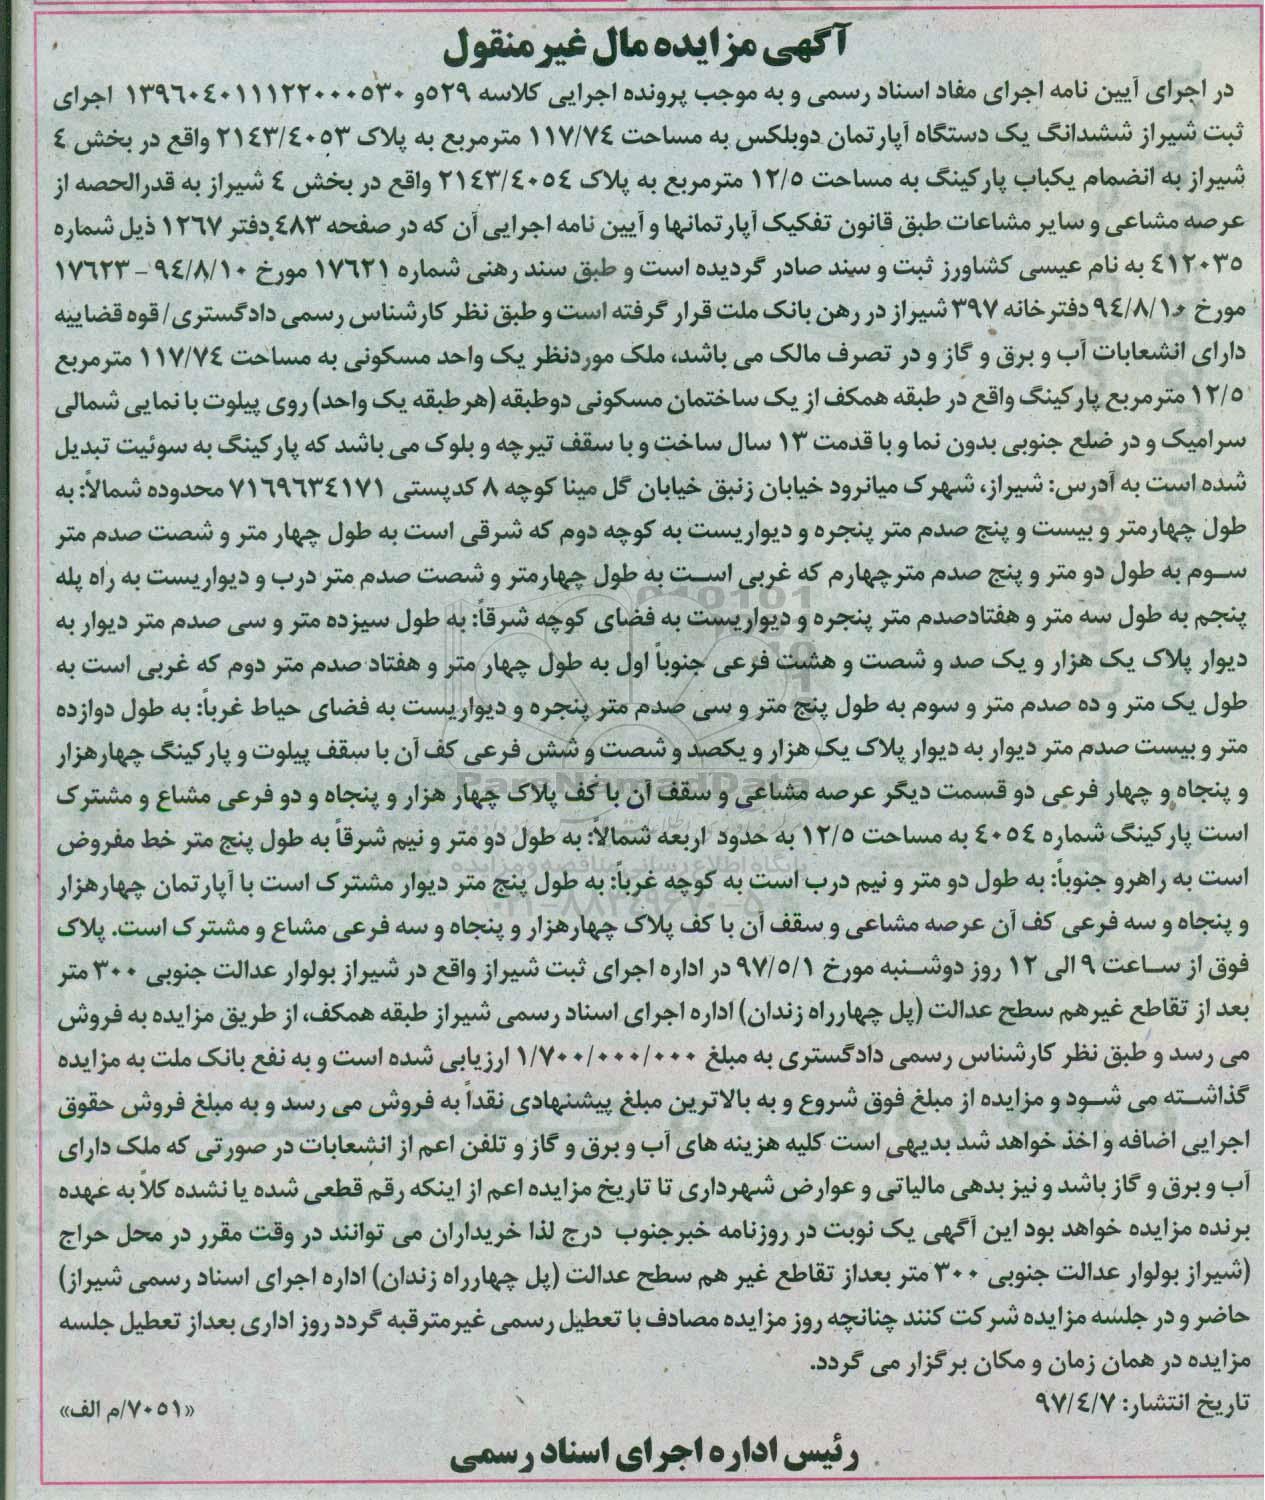 آگهی مزایده مال غیر منقول
در اجرای آیین نامه اجرای مفاد اسناد رسمی و به موجب پرونده اجرایی کلاسه ۵۲۹و ۱۳۹۶۰۴۰۱۱۱۲۲۰۰۰۵۳۰ اجرای
ثبت شیراز ششدانگ یک دستگاه آپارتمان دوبلکس به مساحت ۱۱۷/۷۴ مترمربع به پلاک ۲۱۴۳/۴۰۵۳ واقع در بخش ۴
شیراز به انضمام یکباب پارکینگ به مساحت ۱۲/۵ مترمربع به پلاک ۲۱۴۳/۴۰۵۴ واقع در بخش ۴ شیراز به قدرالحصه از
عرصه مشاعی و سایر مشاعات طبق قانون تفکیک آپارتمانها و آیین نامه اجرایی آن که در صفحه ۴۸۳ دفتر ۱۲۶۷ ذیل شماره
۴۱۲۰۳۵ به نام عیسی کشاورز ثبت و سند صادر گردیده است و طبق سند رهنی شماره ۱۷۶۲۱ مورخ ۹۴/۸/۱۰ – ۱۷۶۲۳
مورخ ۹۴/۸/۱۰ دفترخانه ۳۹۷ شیراز در رهن بانک ملت قرار گرفته است و طبق نظر کارشناس رسمی دادگستری/ قوه قضاییه
دارای انشعابات آب و برق و گاز و در تصرف مالک می باشد، ملک موردنظر یک واحد مسکونی به مساحت ۱۱۷/۷۴ مترمربع
۱۲/۵ مترمربع پارکینگ واقع در طبقه همکف از یک ساختمان مسکونی دوطبقه (هرطبقه یک واحد) روی پیلوت با نمایی شمالی
سرامیک و در ضلع جنوبی بدون نما و با قدمت ۱۳ سال ساخت و با سقف تیرچه و بلوک می باشد که پارکینگ به سوئیت تبدیل
شده است به آدرس: شیراز، شهرک میانرود خیابان زنبق خیابان گل مینا کوچه ۸ کدپستی ۷۱۶۹۶۳۴۱۷۱ محدوده شمالاً: به
طول چهارمتر و بیست و پنج صدم متر پنجره و دیواریست به کوچه دوم که شرقی است به طول چهار متر و شصت صدم متر
سوم به طول دو متر و پنج صدم مترچهارم که غربی است به طول چهارمتر و شصت صدم متر درب و دیواریست به راه پله
پنجم به طول سه متر و هفتادصدم متر پنجره و دیواریست به فضای کوچه شرقاً: به طول سیزده متر و سی صدم متر دیوار به
دیوار پلاک یک هزار و یک صد و شصت و هشت فرعی جنوباً اول به طول چهار متر و هفتاد صدم متر دوم که غربی است به
طول یک متر و ده صدم متر و سوم به طول پنج متر و سی صدم متر پنجره و دیواریست به فضای حیاط غرباً: به طول دوازده
متر و بیست صدم متر دیوار به دیوار پلاک یک هزار و یکصد و شصت و شش فرعی کف آن با سقف پیلوت و پارکینگ چهارهزار
و پنجاه و چهار فرعی دو قسمت دیگر عرصه مشاعی و سقف آن با کف پلاک چهار هزار و پنجاه و دو فرعی مشاع و مشترک
است پارکینگ شماره ۴۰۵۴ به مساحت ۱۲/۵ به حدود اربعه شمالاً: به طول دو متر و نیم شرقاً به طول پنج متر خط مفروض
است به راهرو جنوباً: به طول دو متر و نیم درب است به کوچه غرباً: به طول پنج متر دیوار مشترک است با آپارتمان چهارهزار
و پنجاه و سه فرعی کف آن عرصه مشاعی و سقف آن با کف پلاک چهارهزار و پنجاه و سه فرعی مشاع و مشترک است. پلاک
فوق از ساعت ۹ الی ۱۲ روز دوشنبه مورخ ۹۷/۵/۱ در اداره اجرای ثبت شیراز واقع در شیراز بولوار عدالت جنوبی ۳۰۰ متر
بعد از تقاطع غیرهم سطح عدالت (پل چهارراه زندان) اداره اجرای اسناد رسمی شیراز طبقه همکف، از طریق مزایده به فروش
می رسد و طبق نظر کارشناس رسمی دادگستری به مبلغ ۱/۷۰۰/۰۰۰/۰۰۰ ارزیابی شده است و به نفع بانک ملت به مزایده
گذاشته می شود و مزایده از مبلغ فوق شروع و به بالاترین مبلغ پیشنهادی نقداً به فروش می رسد و به مبلغ فروش حقوق
اجرایی اضافه و اخذ خواهد شد بدیهی است کلیه هزینه های آب و برق و گاز و تلفن اعم از انشعابات در صورتی که ملک دارای
آب و برق و گاز باشد و نیز بدهی مالیاتی و عوارض شهرداری تا تاریخ مزایده اعم از اینکه رقم قطعی شده یا نشده کلاً به عهده
برنده مزایده خواهد بود این آگهی یک نوبت در روزنامه خبرجنوب درج لذا خریداران می توانند در وقت مقرر در محل حراج
(شیراز بولوار عدالت جنوبی ۳۰۰ متر بعداز تقاطع غیر هم سطح عدالت (پل چهارراه زندان) اداره اجرای اسناد رسمی شیراز)
حاضر و در جلسه مزایده شرکت کنند چنانچه روز مزایده مصادف با تعطیل رسمی غیرمترقبه گردد روز اداری بعداز تعطیل جلسه
مزایده در همان زمان و مکان برگزار می گردد.
تاریخ انتشار: ۹۷/۴/۷
«۷۰۵۱/م الف»
رئیس اداره اجرای اسناد رسمی
ParsNamadData
پایگاه اطلاع رسانی مناقصه و مزایده